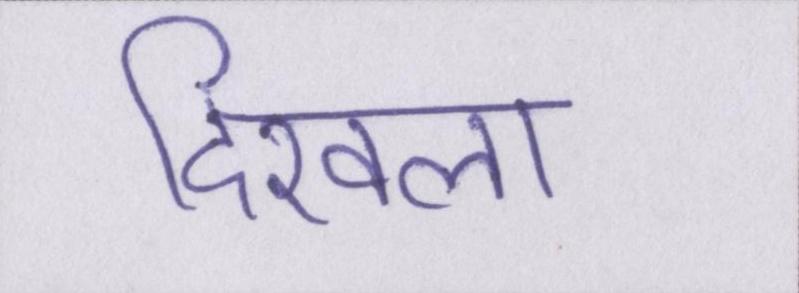 दिखला